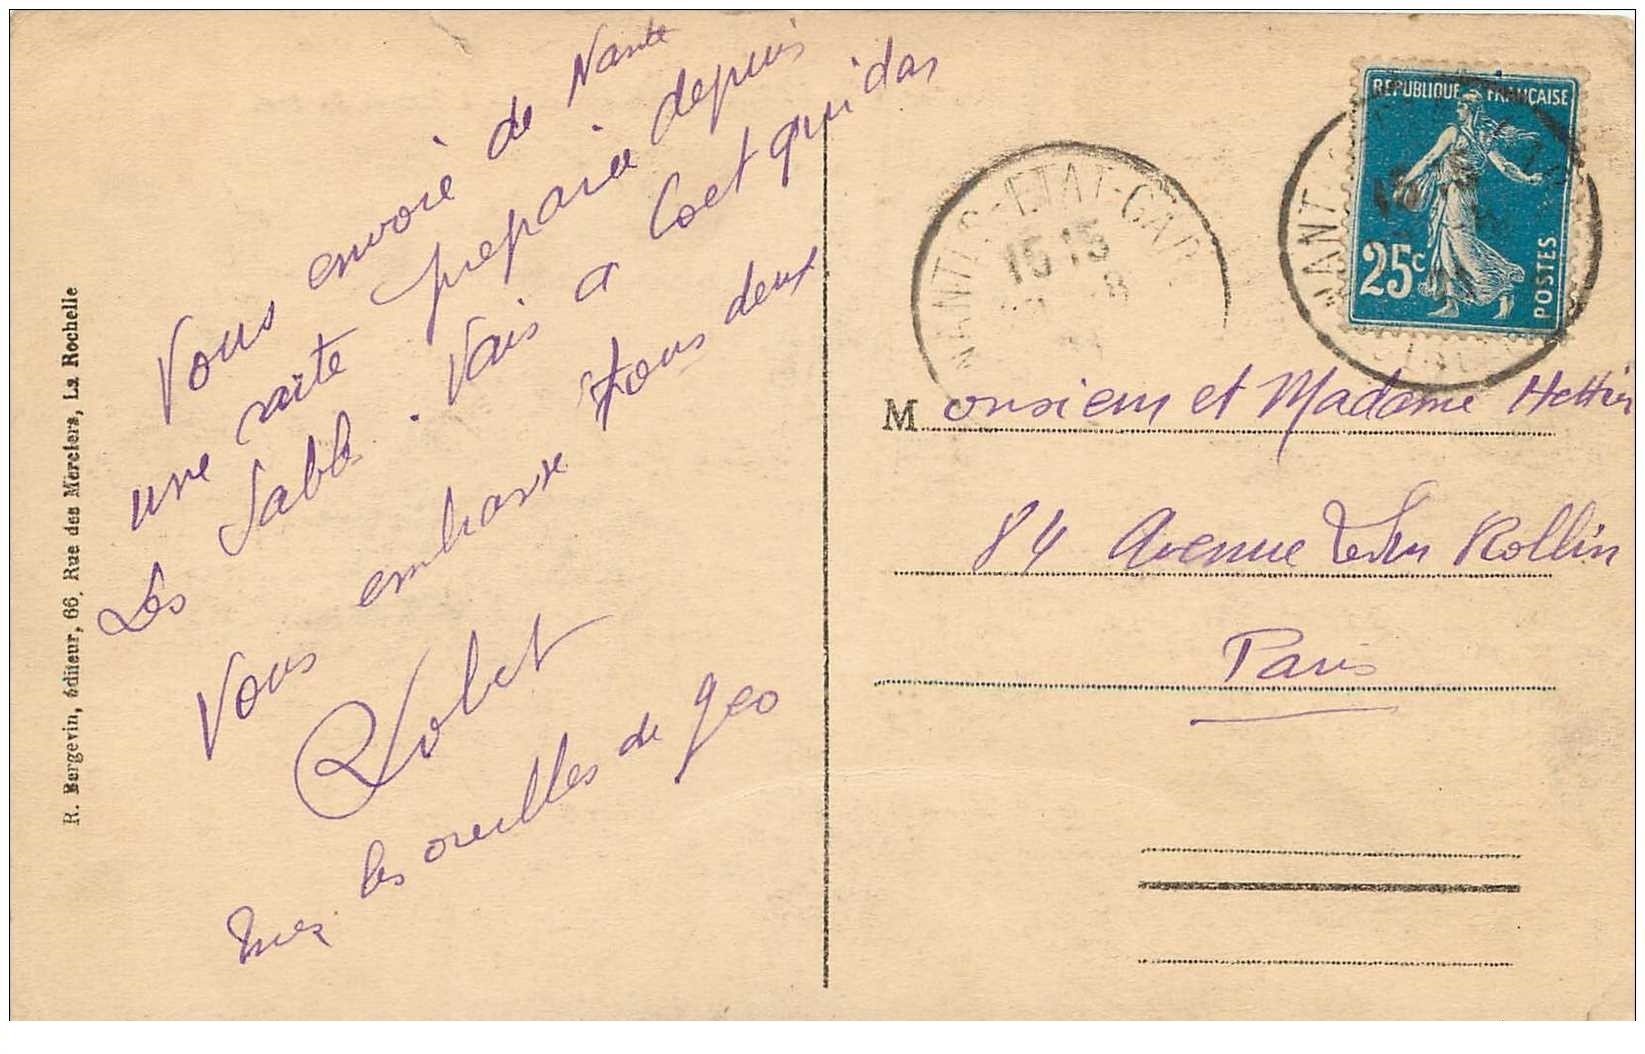 Vous envoie de Nante
une carte preparée depuis
Les Sable. Vais a Coetquidan
Vous embrasse tous deux
Robert
les oreilles de geo
R. Bergevin, éditeur, 66, Rue des Merciers, La Rochelle
NANTES-ETAT-GARE
15 15
REPUBLIQUE FRANÇAISE
25c
POSTES
Monsieur et Madame Hettier
84 Avenue Ledru Rollin
Paris